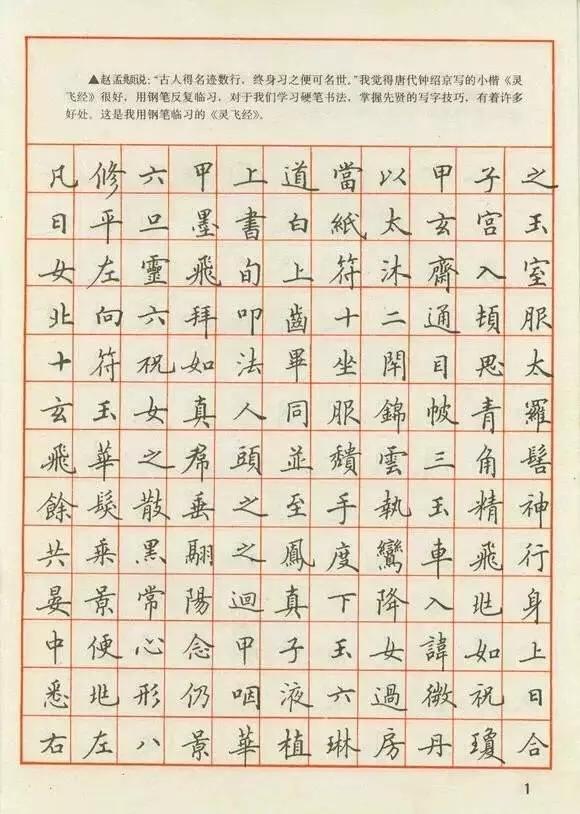 ▲赵孟頫说：“古人得名迹数行，终身习之便可名世。”我觉得唐代钟绍京写的小楷《灵
飞经》很好，用钢笔反复临习，对于我们学习硬笔书法，掌握先贤的写字技巧，有着许多
好处。这是我用钢笔临习的《灵飞经》。
凡修六甲上道當以甲子之
日平旦墨書白紙太玄宮玉
女左靈飛旬上符沐齋入室
北向六拜叩齒十二通頓服
十符祝如法畢坐閇目思太
玄玉女真人同服錦帔青羅
飛華之帬頭並穨雲三角髻
餘髮散垂之至手執玉精神
共乘黑翮之鳳度鸞車飛行
晏景常陽迴真下降入兆身
中便心念甲子玉女諱如上
悉兆形仍咽液六過微祝曰
右左八景華植琳房丹瓊合
1